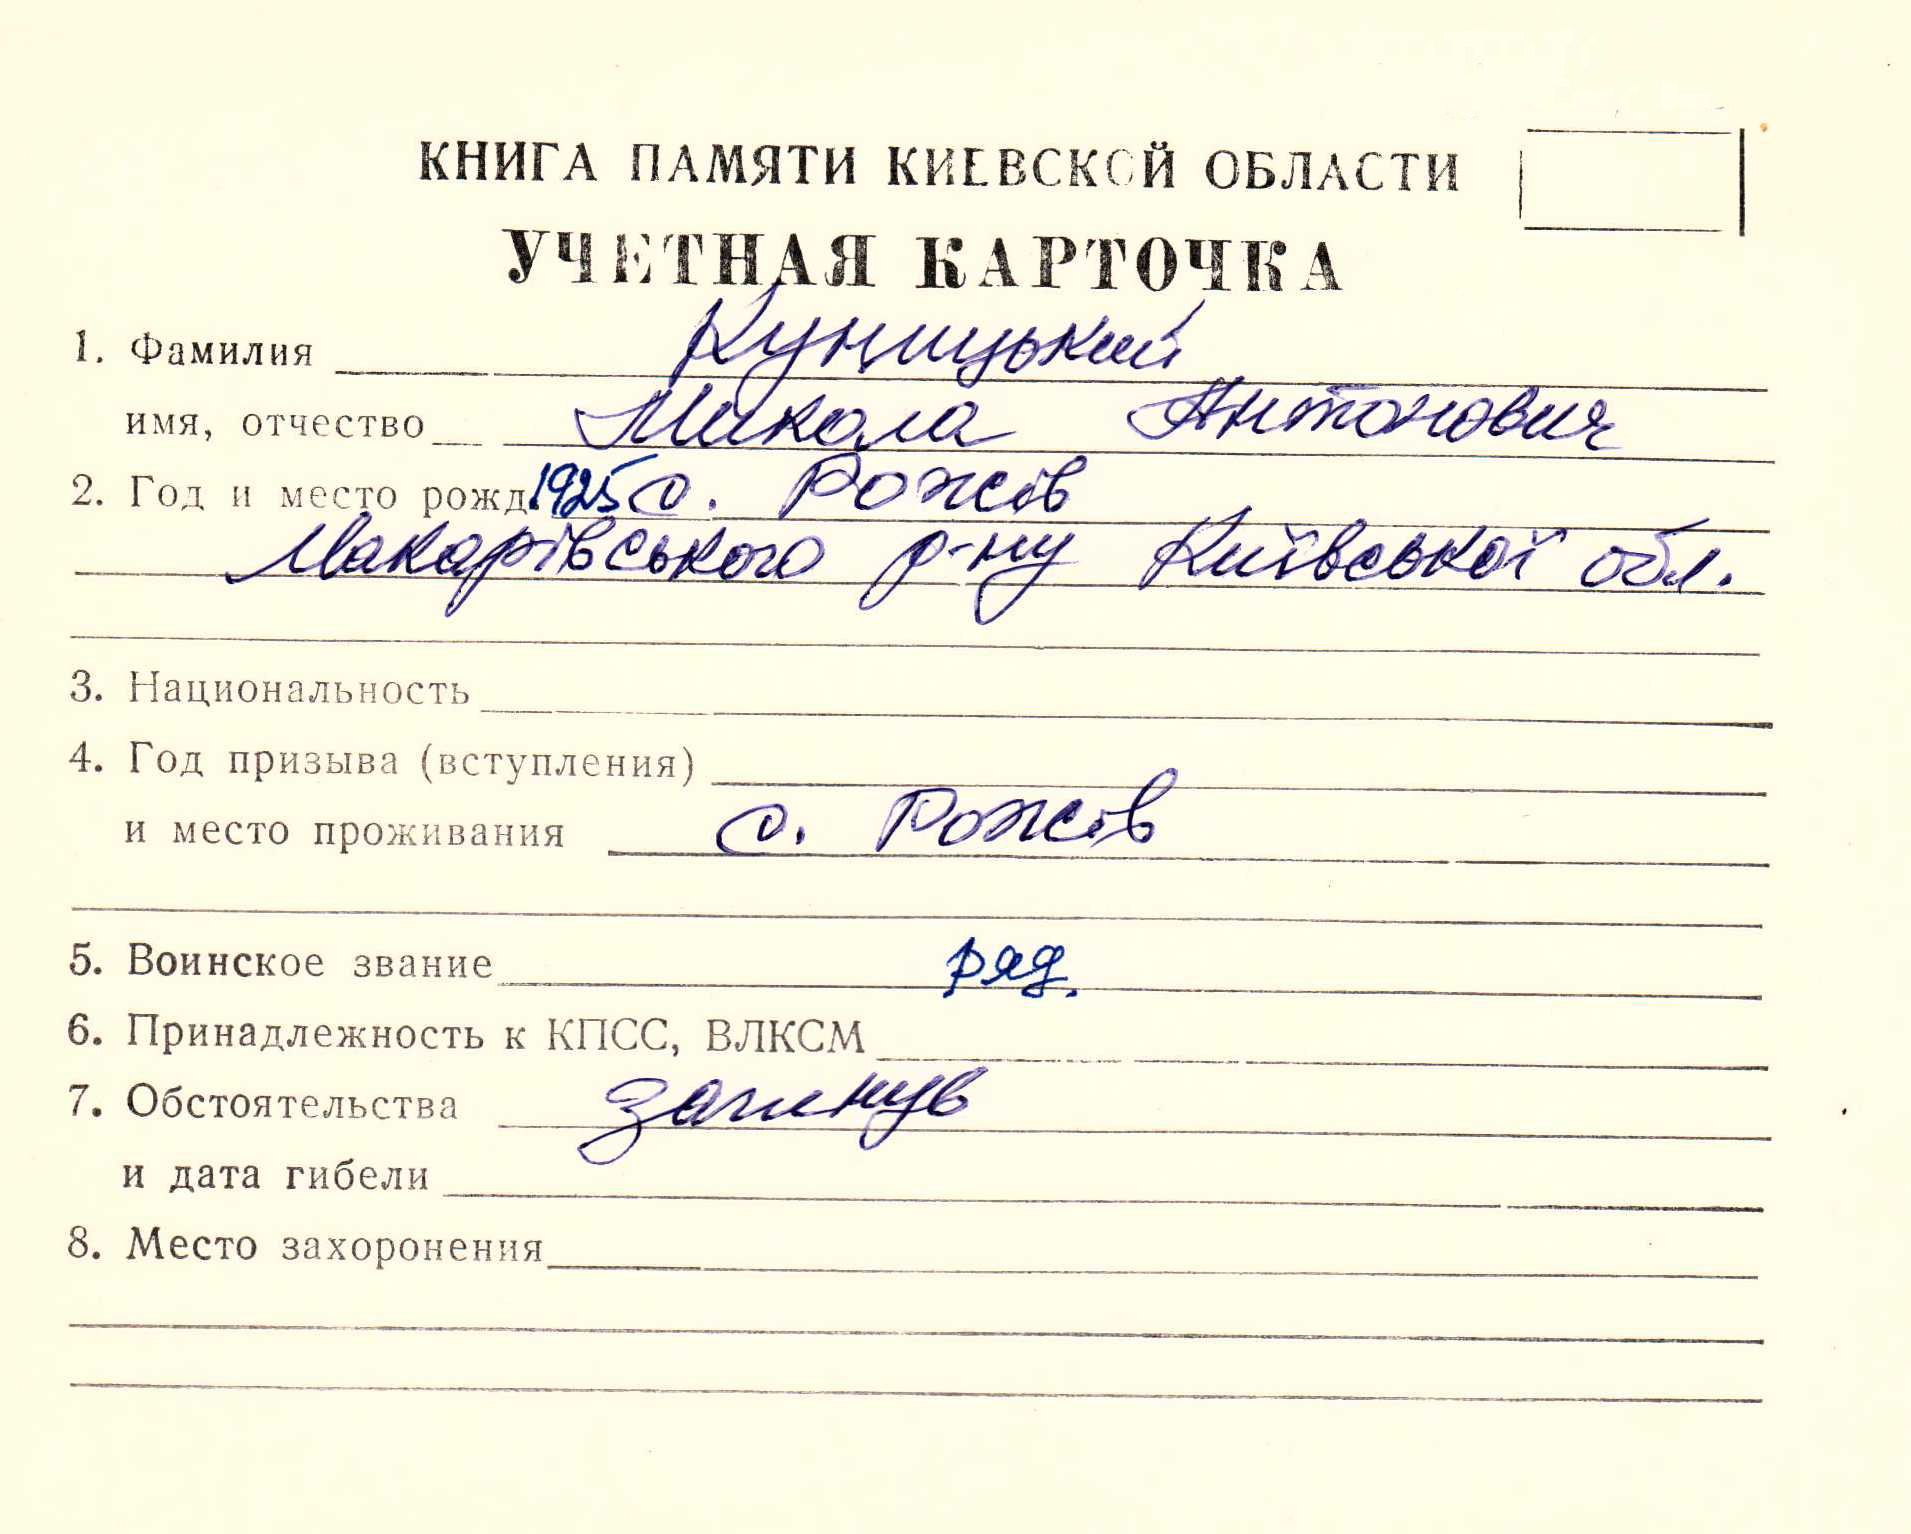 КНИГА ПАМЯТИ КИЕВСКОЙ ОБЛАСТИ
УЧЕТНАЯ КАРТОЧКА
1. Фамилия Куницький
имя, отчество Микола Антонович
2. Год и место рожд 1925 с. Рожів
Макарівського р-ну Київської обл.
3. Национальность
4. Год призыва (вступления)
и место проживания с. Рожів
5. Воинское звание ряд.
6. Принадлежность к КПСС, ВЛКСМ
7. Обстоятельства загинув
и дата гибели
8. Место захоронения